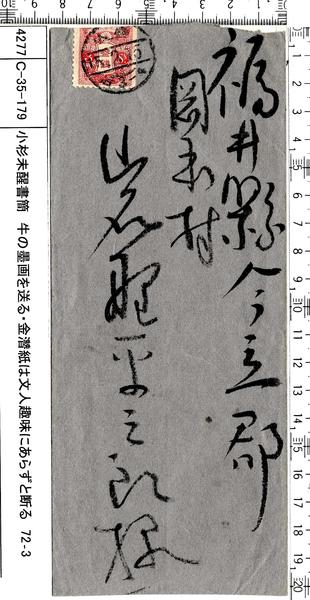 福井縣今立郡
岡本村
岩野平三郎様
4277 C-35-179 小杉未醒書簡 牛の墨画を送る・金潜紙は文人趣味にあらずと断る 72-3